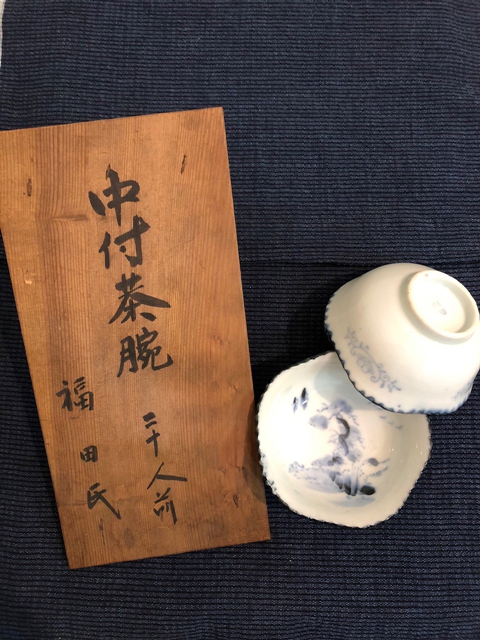 中付茶腕
二十人前
福田氏